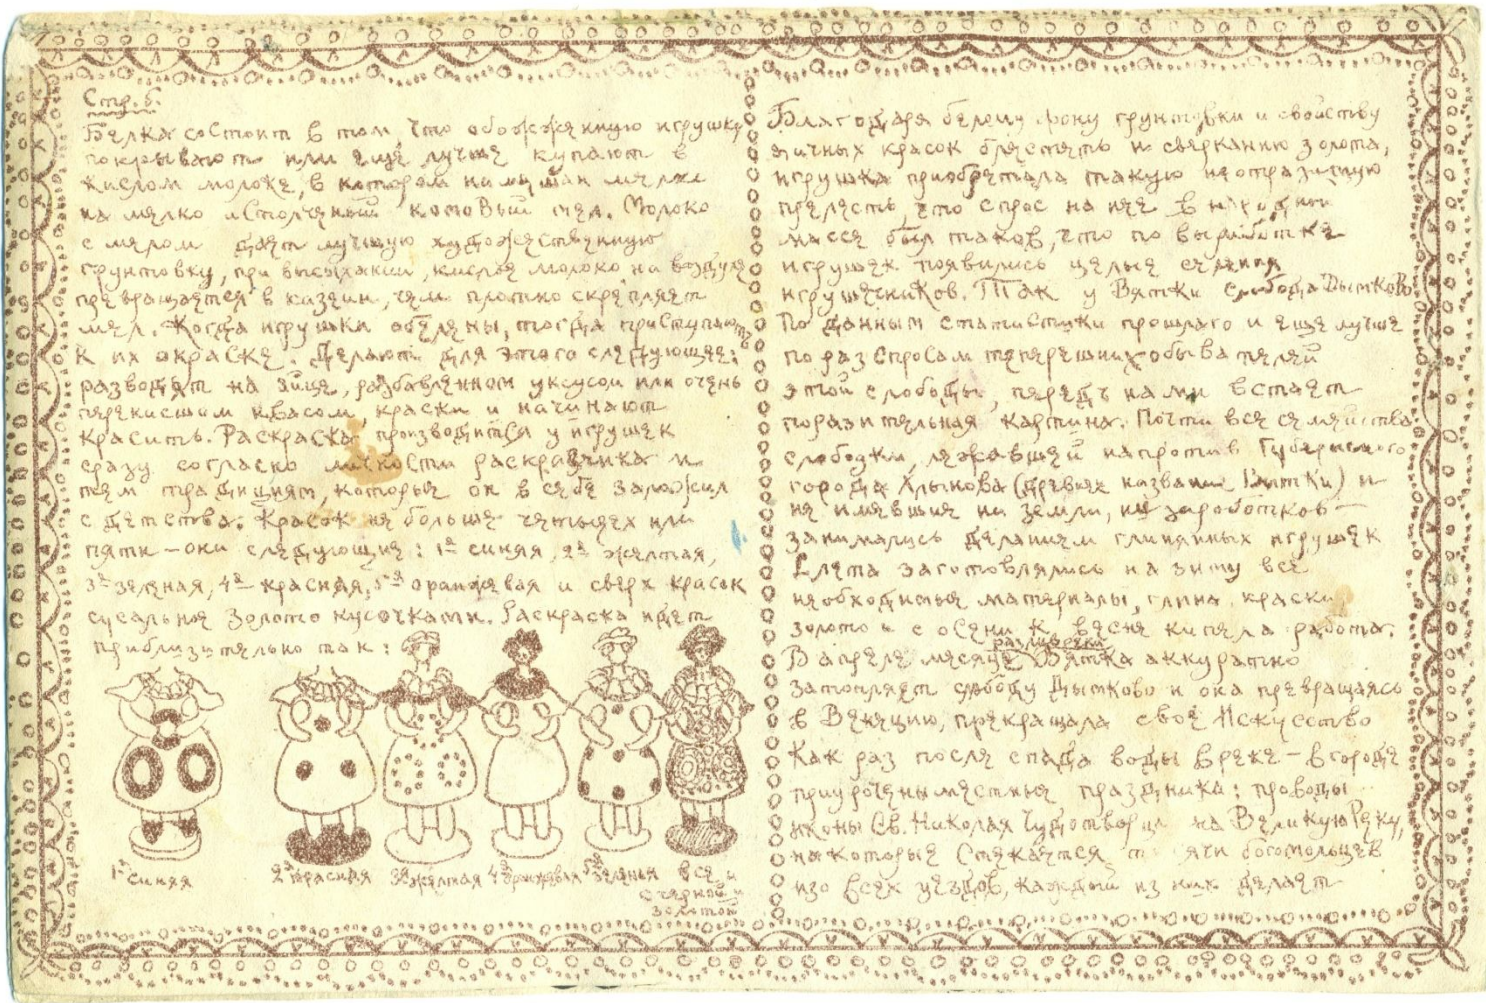 Стр. 6.
Белка состоит в том, что обожженную игрушку
покрывают или еще лучше купают в
кислом молоке, в котором намешан мелко
на мелко истолченый комовый мел. Молоко
с мелом дает лучшую художественную
грунтовку, при высыхании, кислое молоко, на воздухе
превращается в казеин, чем плотно скрепляет
мел. Когда игрушки обелены, тогда приступают
к их окраске. Делают для этого следующее:
разводят на яйце, разбавленном уксусом или очень
перекисшим квасом, краски и начинают
красить. Раскраска производится у игрушек
сразу согласно личности раскрасчика и
тем традициям, которые он в себе заложил
с детства. Красок не больше четырех или
пяти — они следующие: 1ая синяя, 2ая желтая,
3ая зеленая, 4ая красная, 5ая оранжевая и сверх красок
сусальное золото кусочками. Раскраска идет
приблизительно так:
1ая синяя
2ая красная
3ая желтая
4ая оранжевая
5ая зеленая
все и
с черной и
золотой
Благодаря белому фону грунтовки и свойству
яичных красок блестеть и сверканию золота,
игрушка приобретала такую неотразимую
прелесть, что спрос на нее в народной
массе был таков, что по выработке
игрушек появились целые селения
игрушечников. Так у Вятки слобода Дымково.
По данным статистики прошлаго и еще лучше
по разспросам теперешних обывателей
этой слободы, передъ нами встает
поразительная картина. Почти все семейства
слободки, лежавшей напротив Губернского
города Хлынова (древнее название Вятки) и
не имевшие ни земли, ни заработков —
занимались деланием глиняных игрушек
С лета заготовлялись на зиму все
необходимые материалы, глина, краски
золото и с осени к весне кипела работа.
В апреле месяце разлив реки Вятка аккуратно
затопляет слободу Дымково и она превращаясь
в Венецию, прекращала свое Искусство
Как раз после спада воды в реке — в городе
приурочены местные праздника: проводы
иконы Св. Николая Чудотворца на Великую Реку,
на которые стекается тысячи богомольцев
изо всех уездов, каждый из них делает